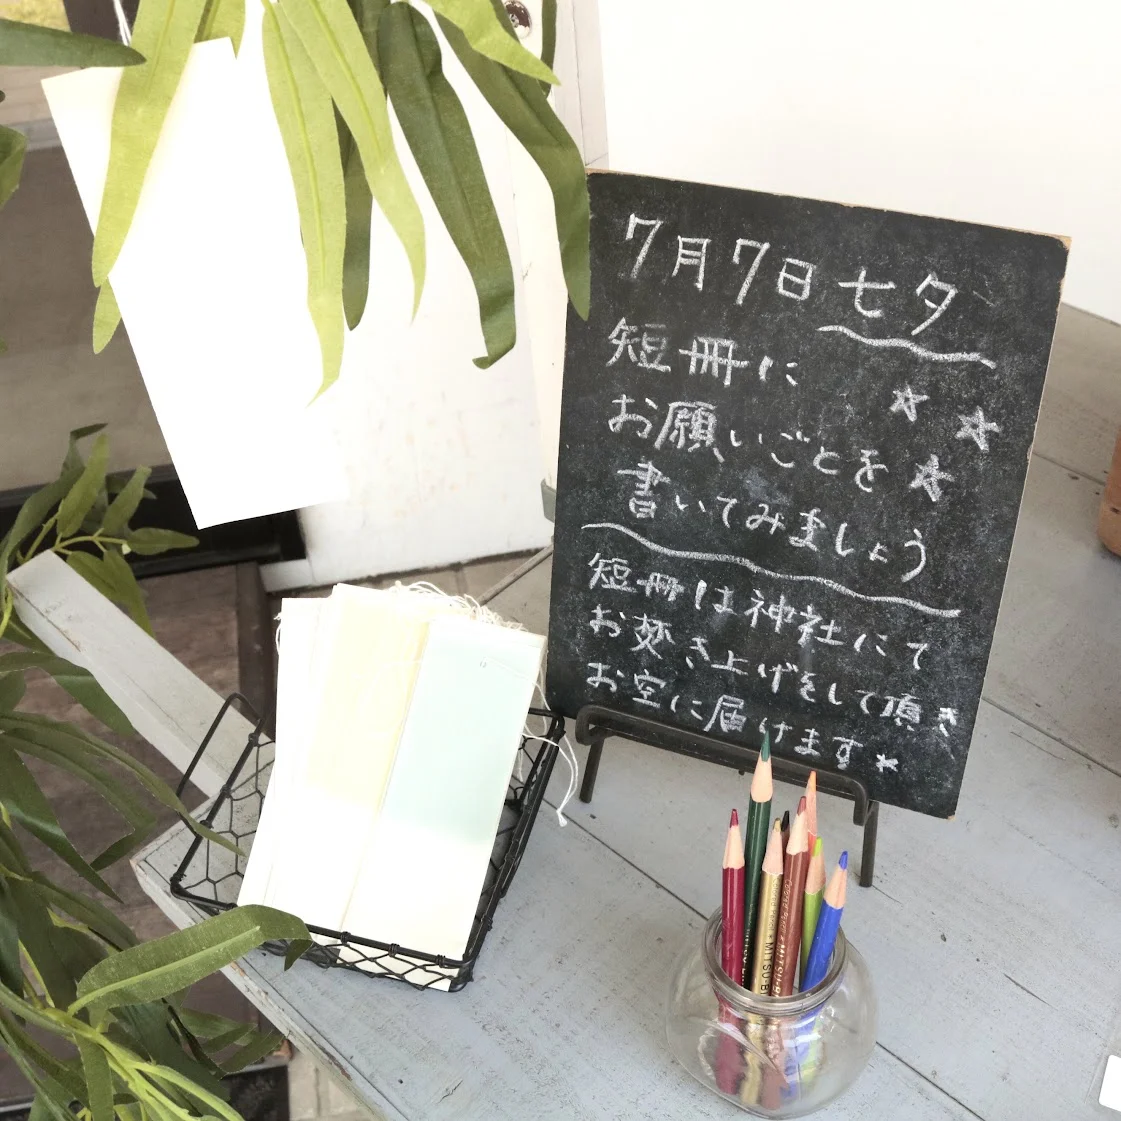 7月7日 七夕
短冊に
お願いごとを
書いてみましょう
短冊は神社にて
お焚き上げをして頂き
お空に届けます
MITSU-B